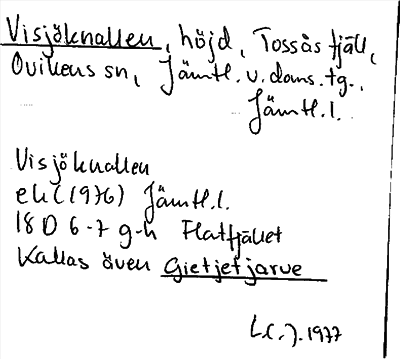 Visjöknallen, höjd, Tossåsfjäll,
Ovikens sn, Jämtl. v. doms. tg.,
Jämtl. l.
Visjöknallen
ek (1976) Jämtl. l.
18 D 6-7 g-h Flatfjället
Kallas även Gietjetjarve
L.C.J. 1977